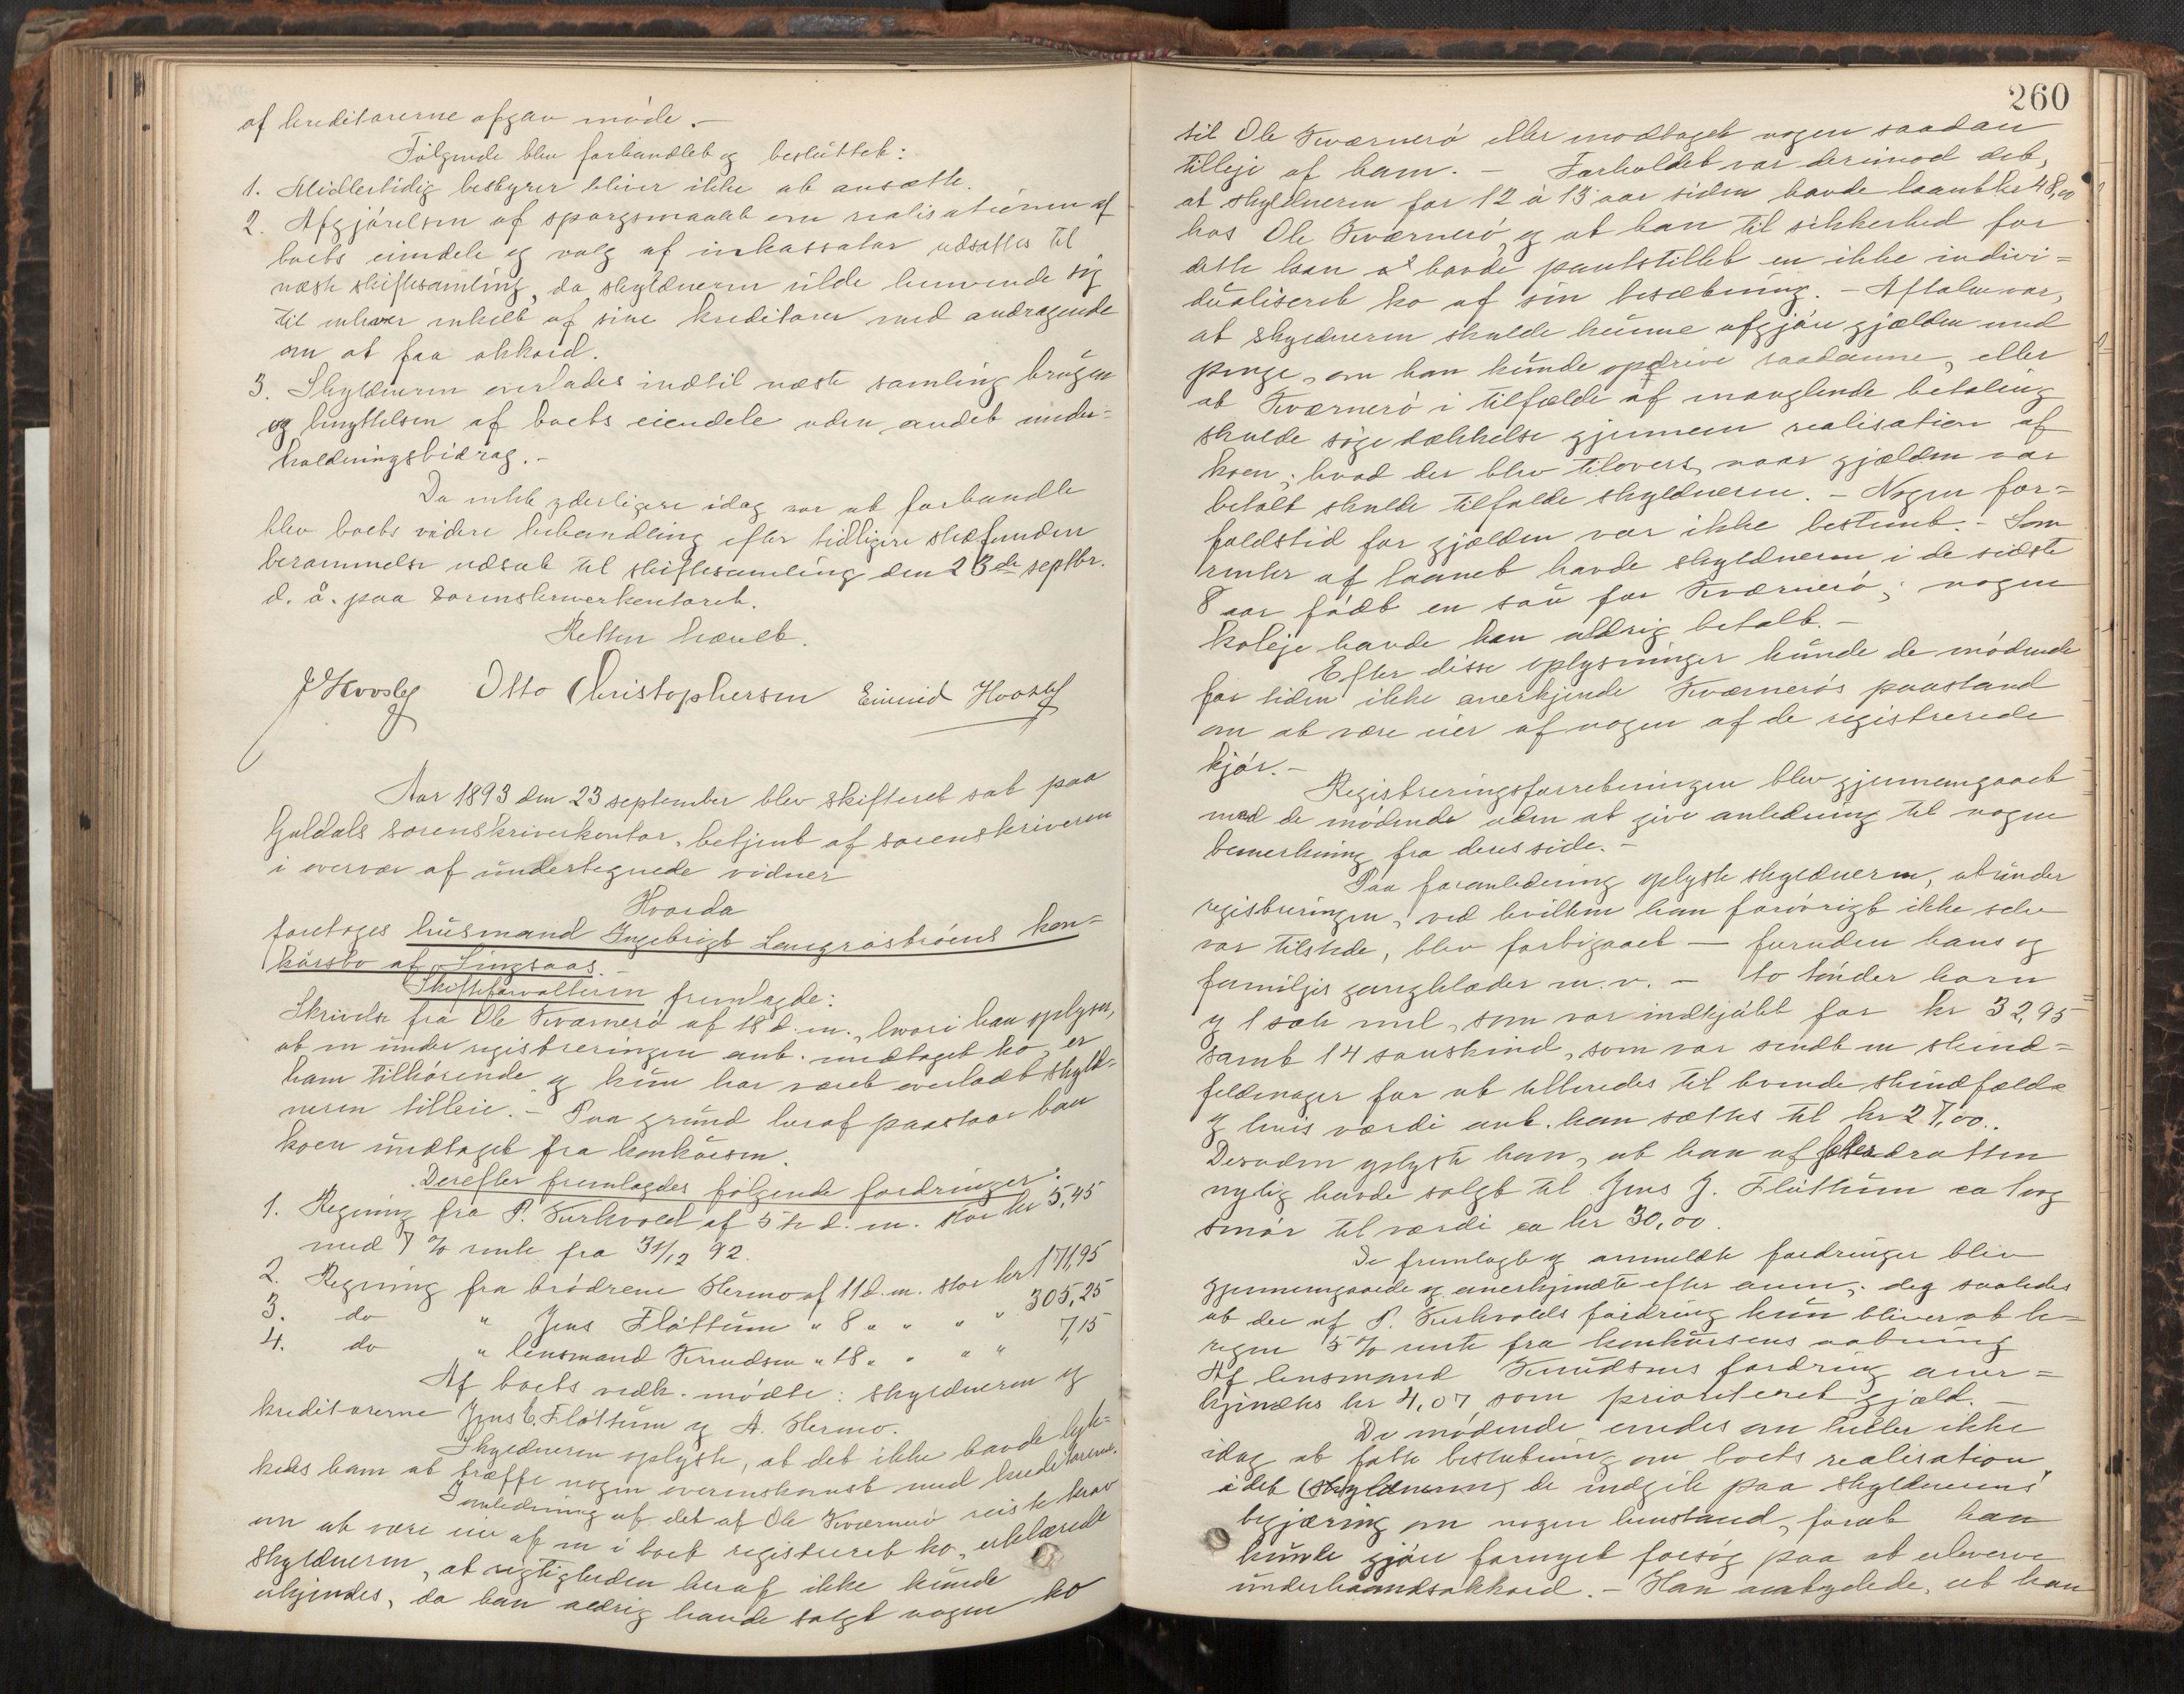 af kreditorerne afgav møde.-
Følgende blev forhandlet og besluttet:
1. Midlertidig bestyrer bliver ikke at ansætte.
2. Afgjørelsen af spørgsmaalet om realisationen af
boets eiendele og valg af inkassator udsættes til
næste skiftesamling, da skyldneren vilde henvende sig
til enhver enkelt af sine kreditorer med andragende
om at faa akkord.
3. Skyldneren overlades indtil næste samling brugen
og benyttelsen af boets eiendele uden andet under=
holdningsbidrag.-
Da intet yderligere idag var at forhandle
blev boets videre behandling efter tidligere stedfunden
berammelse udsat til skiftesamling den 23de septbr.
d. å. paa Sorenskriverkontoret.
Retten hævet.
J Hvoslef Otto Christophersen Eimind Hvoslef
Aar 1893 den 23 september blev skifteret sat paa
Guldals sorenskriverkontor, betjent af sorenskriveren
i overvær af undertegnede vidner
Hvorda
foretoges husmand Ingebrigt Langrøstrøens kon=
kursbo af Singsaas.-
Skifteforvalteren fremlagde:
Skrivelse fra Ole Kværnerø af 18 d. m., hvori han oplyser,
at en under registreringen ant. medtaget ko, er
ham tilhørende og kun har været overladt skyld=
neren tilleie.- Paa grund heraf paastaar han
koen undtaget fra konkursen.
Derefter fremlagdes følgende fordringer:
1. Regning fra P. Kirkvold af 5te d. m. stor kr 5,45
med 7 % rente fra 31/12 92.
2. Regning fra brødrene Hermo af 11 d. m. stor kr 171,95
3. do " Jens Fløttum " 8 " " " " 305,25
4. do " lensmand Knudsen " 18 " " " " 7,15
Af boets vedk. mødte: skyldneren og
kreditorerne Jens E. Fløttum og A. Hermo.
Skyldneren oplyste, at det ikke havde lyk=
kedes ham at træffe nogen overenskomst med kreditorerne.
I anledning af det af Ole Kværnerø reiste krav
om at være eier af en i boet registreret ko, erklærede
skyldneren, at rigtigheden heraf ikke kunde
erkjendes, da han aldrig havde solgt nogen ko
260
til Ole Kværnerø eller modtaget nogen saadan
tilleje af ham. - Forholdet var derimod det,
at skyldneren for 12 à 13 aar siden havde laant kr 48,00
hos Ole Kværnerø, og at han til sikkerhed for
dette laan havde pantstillet en ikke indivi=
dualiseret ko af sin besætning. - Aftalen var,
at skyldneren skulde kunne afgjøre gjælden med
penge, om han kunde opdrive saadanne, eller
at Kværnerø i tilfælde af manglende betaling
skulde søge dækkelse gjennem realisation af
koen; hvad der blev tilovers, naar gjælden var
betalt skulde tilfalde skyldneren. - Nogen for=
faldstid for gjælden var ikke bestemt. - Som
renter af laanet havde skyldneren i de sidste
8 aar födt en sau for Kværnerø; nogen
koleje havde han aldrig betalt. -
Efter disse oplysninger kunde de mødende
for tiden ikke anerkjende Kværnerøs paastand
om at være eier af nogen af de registrerede
kjør. -
Registreringsforretningen blev gjennemgaaet
med de mødende uden at give anledning til nogen
bemerkning fra deres side. -
Paa foranledning oplyste skyldneren, at under
registreringen, ved hvilken han forøvrigt ikke selv
var tilstede, blev forbigaaet - foruden hans og
familjes gangklæder m. v. - to tønder korn
og 1 sæk mel, som var indkjøbt for kr 32,95
samt 14 saueskind, som var sendt en skind=
feldmager for at tilberedes til tvende skindfælde
og hvis værdi ant. kan sættes til kr 27,00..
Desuden oplyste han, at han af fødraatten
nylig havde solgt til Jens J. Fløttum ca 1 vog
smør til værdi ca kr 30,00.
De fremlagte og anmeldte fordringer blev
gjennemgaaede og anerkjendte efter anm., dog saaledes
at der af P. Kirkvolds fordring kun bliver at be=
regne 5 % rente fra konkursens aabning
Af lensmand Knudsens fordring aner=
kjendtes kr 4,07 som prioriteret gjæld. -
De mødende enedes om heller ikke
idag at fatte beslutning om boets realisation,
idet (skyldneren) de indgik paa skyldnerens
begjæring om nogen henstand, forat han
kunde gjøre fornyet forsøg paa at erhverve
underhaandsakkord. - Han antydede, at han